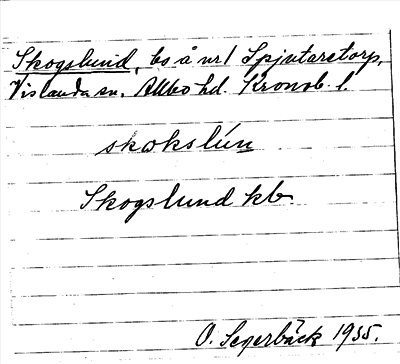 Skogslund, bs å nr 1 Spjutaretorp,
Vislanda sn. Allbo hd. Kronob. l.
skokslún
Skogslund kb
O. Segerbäck 1935.